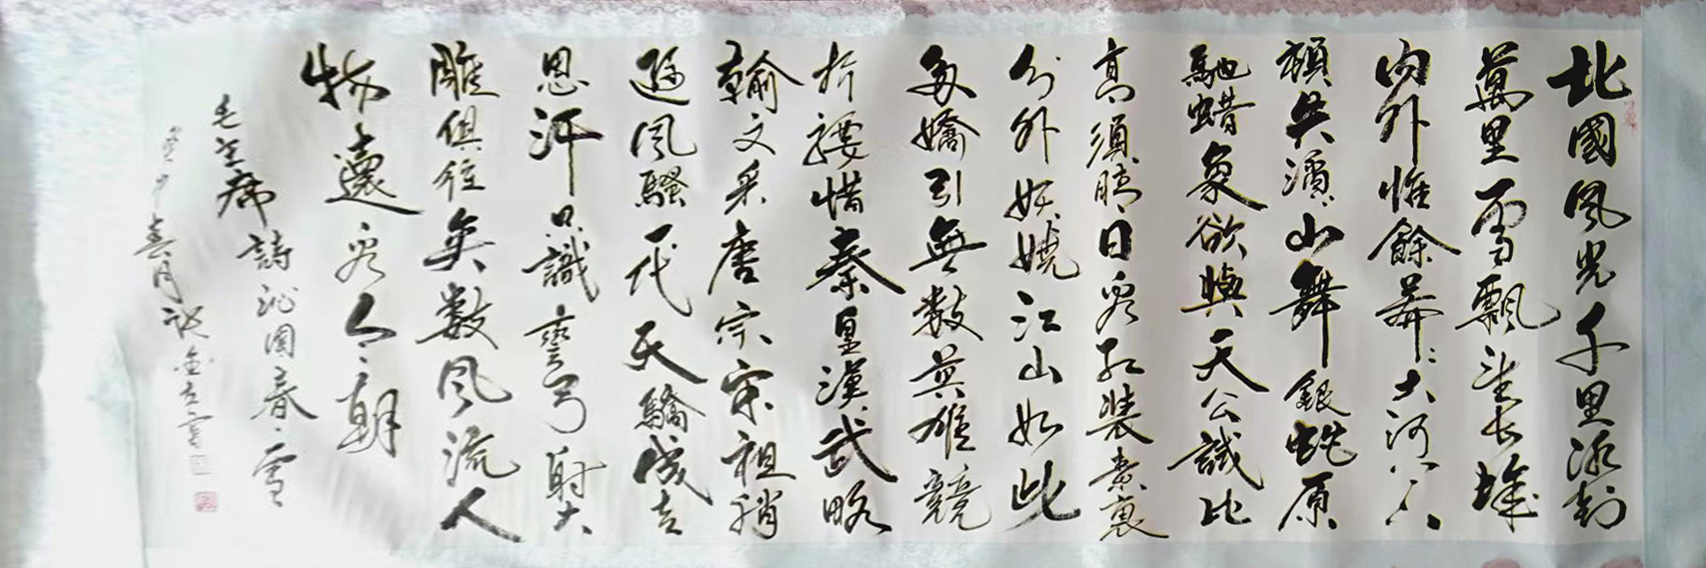 北國風光千里冰封
萬里雪飄望長城
内外惟餘莽々大河上下
頓失滔々山舞銀蛇原
馳蜡象欲與天公試比
高須晴日看紅裝素裹
分外妖嬈江山如此
多嬌引無數英雄競
折腰惜秦皇漢武略
輸文采唐宗宋祖稍
遜風騷一代天驕成吉
思汗只識彎弓射大
雕俱往矣數風流人
物還看今朝
毛主席詩沁園春雪
春月